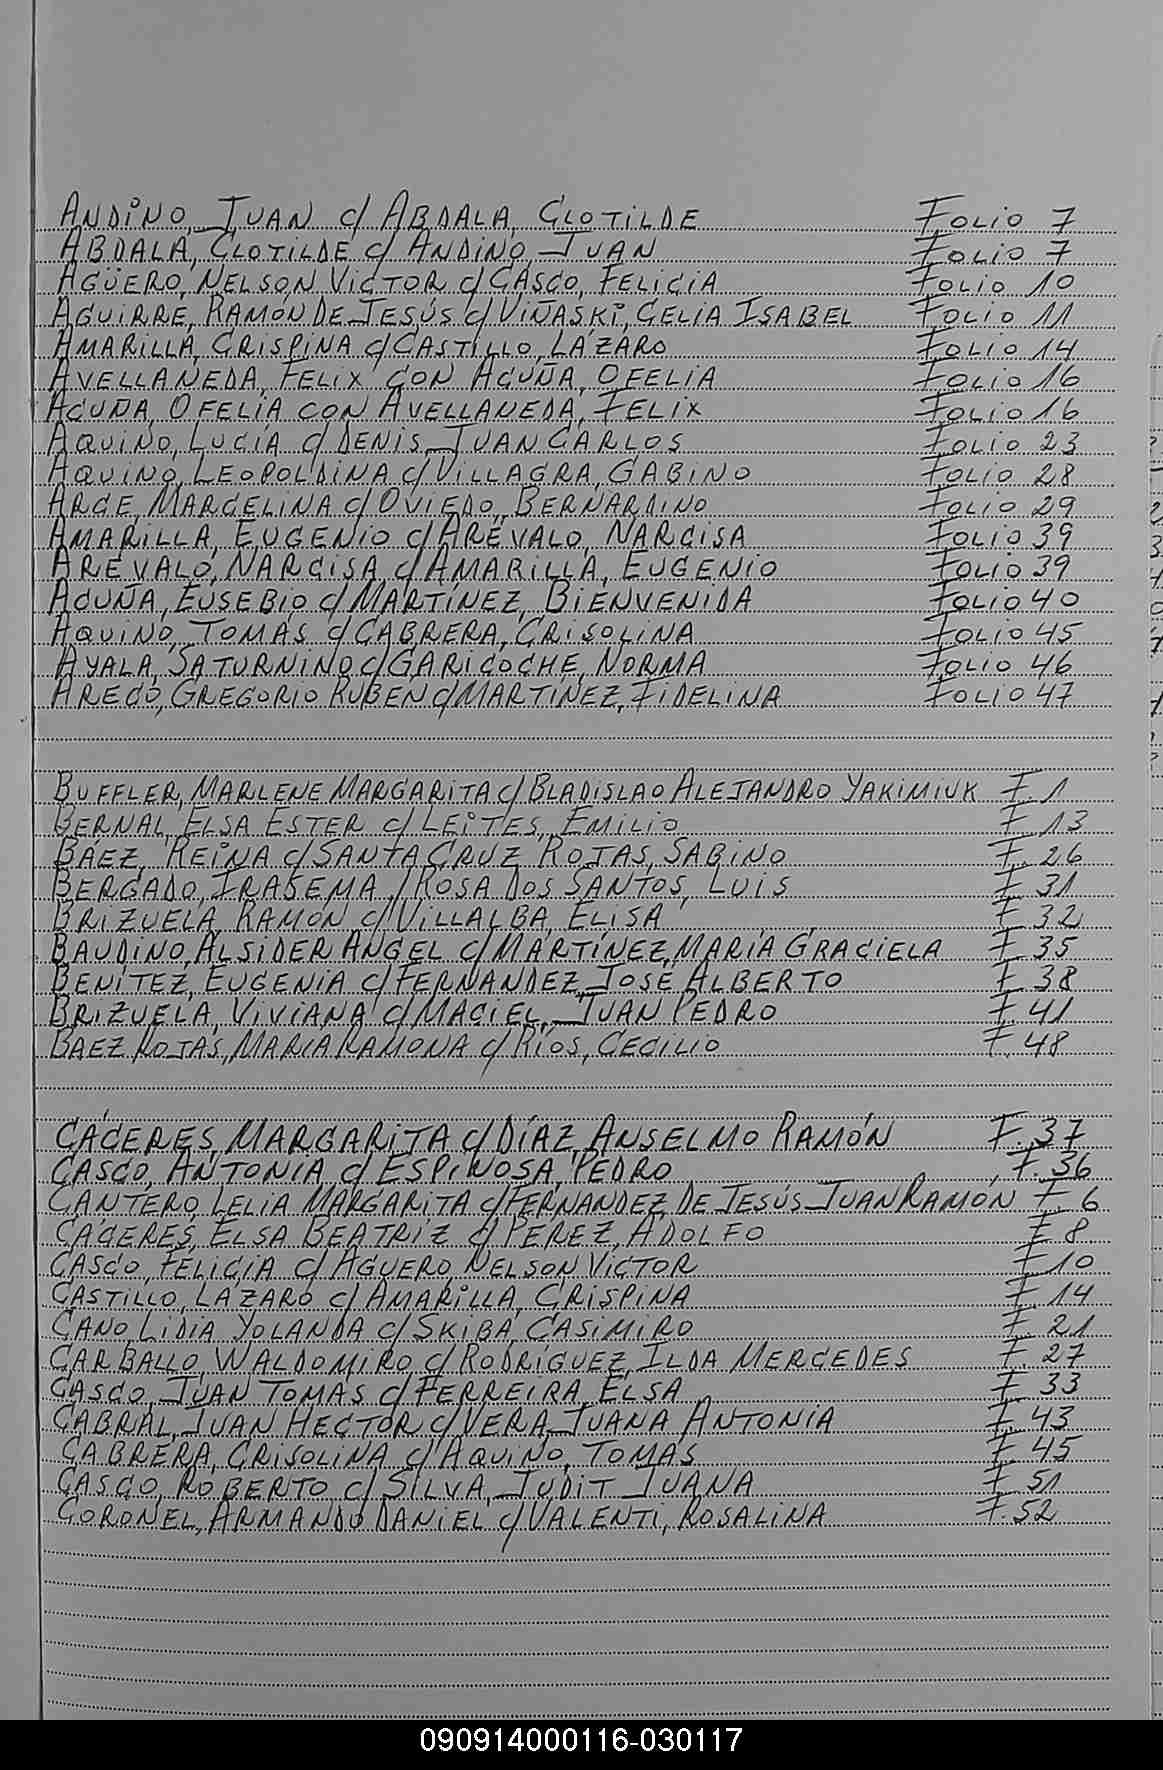 ANDINO, JUAN c/ ABDALA, CLOTILDE FOLIO 7
ABDALA, CLOTILDE c/ ANDINO, JUAN FOLIO 7
AGÜERO, NELSON VICTOR c/ CASCO, FELICIA FOLIO 10
AGUIRRE, RAMÓN DE JESÚS c/ VIÑASKI, CELIA ISABEL FOLIO 11
AMARILLA, CRISPINA c/ CASTILLO, LÁZARO FOLIO 14
AVELLANEDA, FELIX CON ACUÑA, OFELIA FOLIO 16
ACUÑA, OFELIA CON AVELLANEDA, FELIX FOLIO 16
AQUINO, LUCÍA c/ DENIS, JUAN CARLOS FOLIO 23
AQUINO, LEOPOLDINA c/ VILLAGRA, GABINO FOLIO 28
ARCE, MARCELINA c/ OVIEDO, BERNARDINO FOLIO 29
AMARILLA, EUGENIO c/ ARÉVALO, NARCISA FOLIO 39
ARÉVALO, NARCISA c/ AMARILLA, EUGENIO FOLIO 39
ACUÑA, EUSEBIO c/ MARTÍNEZ, BIENVENIDA FOLIO 40
AQUINO, TOMÁS c/ CABRERA, CRISOLINA FOLIO 45
AYALA, SATURNINO c/ GARICOCHE, NORMA FOLIO 46
ARECO, GREGORIO RUBEN c/ MARTINEZ, FIDELINA FOLIO 47
BUFFLER, MARLENE MARGARITA c/ BLADISLAO ALEJANDRO YAKIMIUK F. 1
BERNAL, ELSA ESTER c/ LEITES, EMILIO F. 13
BÁEZ, REINA c/ SANTA CRUZ ROJAS, SABINO F. 26
BERGADO, IRASEMA / ROSA DOS SANTOS, LUIS F. 31
BRIZUELA, RAMÓN c/ VILLALBA, ELISA F. 32
BAUDINO, ALSIDER ANGEL c/ MARTÍNEZ, MARÍA GRACIELA F. 35
BENÍTEZ, EUGENIA c/ FERNANDEZ, JOSÉ ALBERTO F. 38
BRIZUELA, VIVIANA c/ MACIEL, JUAN PEDRO F. 41
BAEZ ROJAS, MARIA RAMONA c/ RÍOS, CECILIO F. 48
CÁCERES, MARGARITA c/ DÍAZ, ANSELMO RAMÓN F. 37
CASCO, ANTONIA c/ ESPINOSA, PEDRO F. 36
CANTERO, LELIA MARGARITA c/ FERNANDEZ DE JESÚS JUAN RAMÓN F. 6
CÁCERES, ELSA BEATRIZ c/ PEREZ, ADOLFO F. 8
CASCO, FELICIA c/ AGUERO, NELSON VICTOR F. 10
CASTILLO, LÁZARO c/ AMARILLA, CRISPINA F. 14
CANO, LIDIA YOLANDA c/ SKIBA, CASIMIRO F. 21
CARBALLO, WALDOMIRO c/ RODRÍGUEZ, ILDA MERCEDES F. 27
CASCO, JUAN TOMAS c/ FERREIRA, ELSA F. 33
CABRAL, JUAN HECTOR c/ VERA, JUANA ANTONIA F. 43
CABRERA, CRISOLINA c/ AQUINO, TOMÁS F. 45
CASCO, ROBERTO c/ SILVA, JUDIT JUANA F. 51
CORONEL, ARMANDO DANIEL c/ VALENTI, ROSALINA F. 52
090914000116-030117